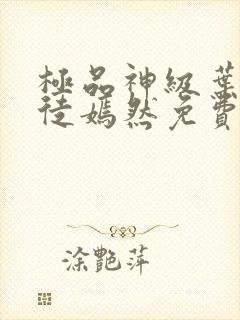 極品神級葉
徒嫣然免費
涂艷萍